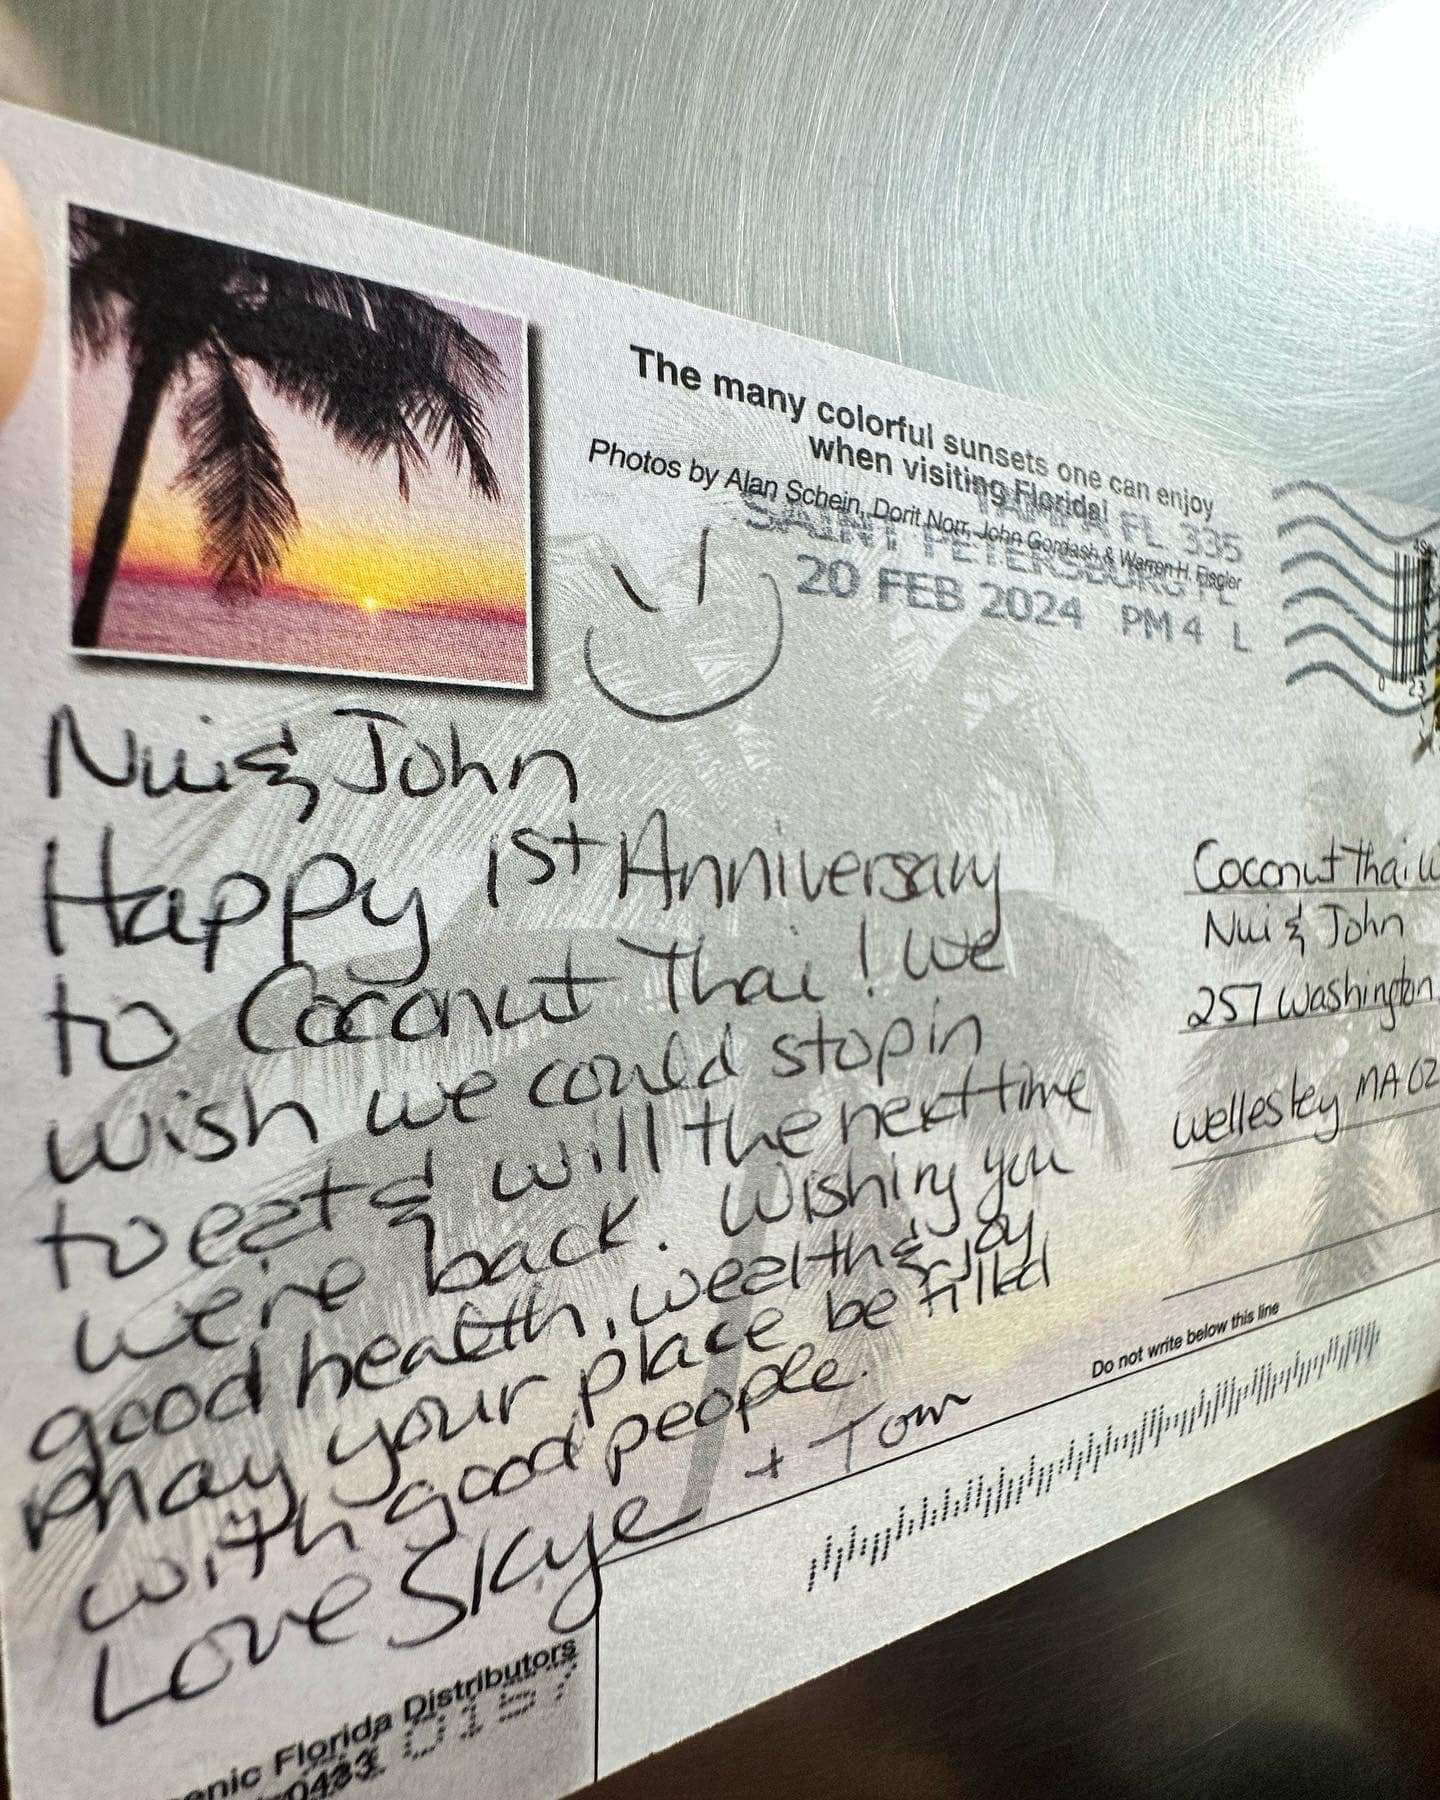 The many colorful sunsets one can enjoy
when visiting Florida!
Photos by Alan Schein, Dorit Norr, John Gordash & Warren H. Flagler
TAMPA FL 335
SAINT PETERSBURG FL
20 FEB 2024 PM 4 L
0 23
Nui & John
Happy 1st Anniversary
to Coconut Thai! We
wish we could stop in
to eat & will the next time
we're back. Wishing you
good health, wealth & joy
may your place be filled
with good people.
Love Skye + Tom
Coconut Thai
Nui & John
257 Washington
Wellesley MA 02
Do not write below this line
enic Florida Distributors
0157
0433